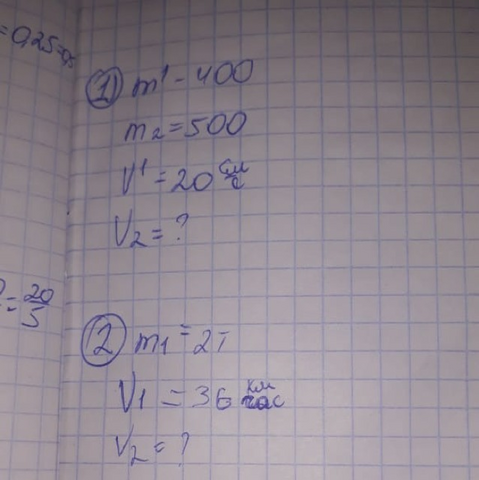 = 0,25
① m¹ - 400
m₂ = 500
V¹ = 20 см/с
V₂ = ?
= 20/5
② m₁ = 2т
V₁ = 36 км/час
V₂ = ?